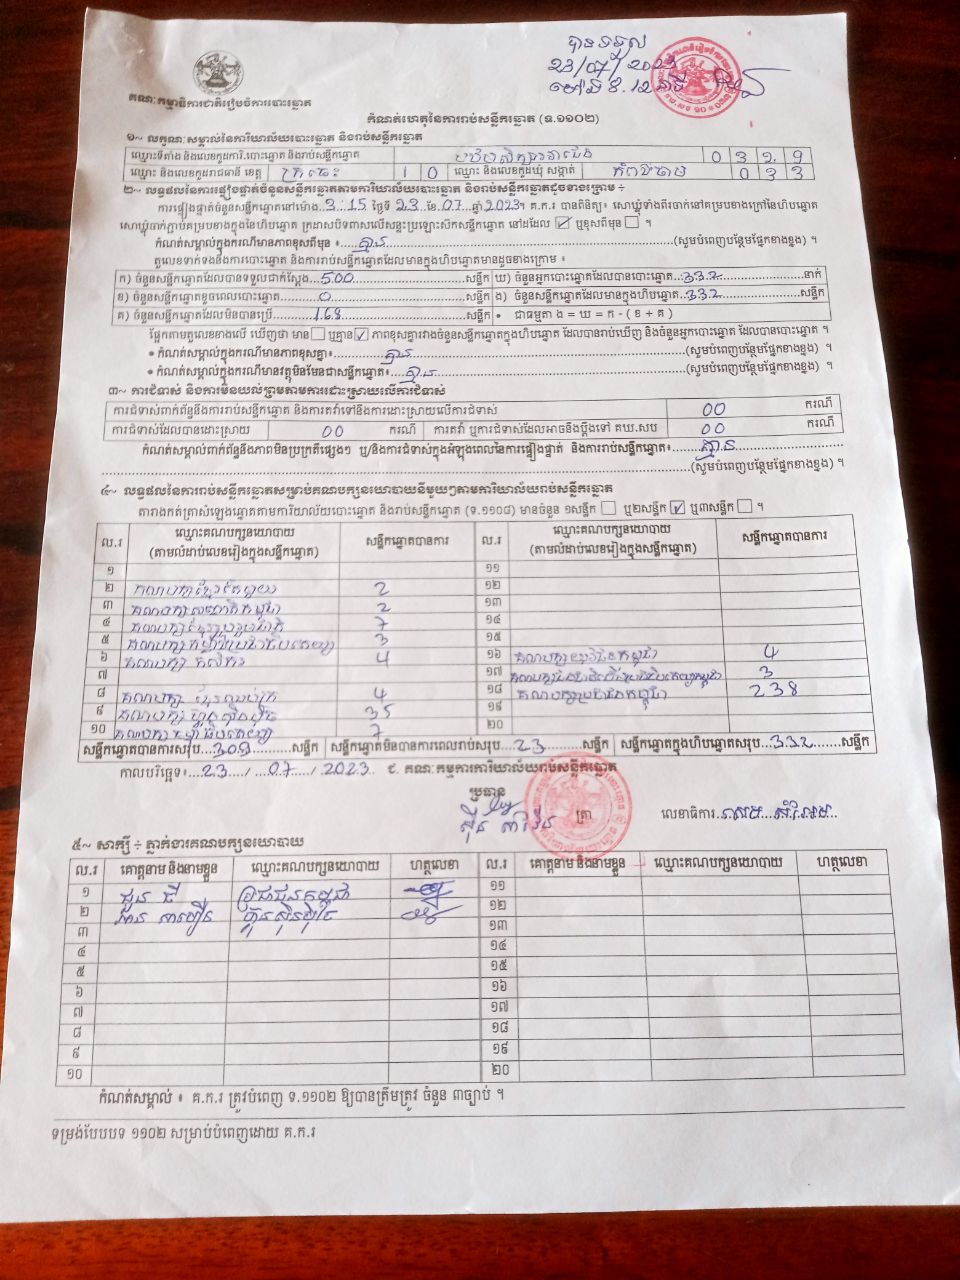 បានទទួល
23/07/2023
ម៉ោង 8.12 នាទី
គណៈកម្មាធិការជាតិរៀបចំការបោះឆ្នោត
កំណត់ហេតុនៃការរាប់សន្លឹកឆ្នោត (ទ.១១០២)
១~ លក្ខណៈសម្គាល់នៃការិយាល័យបោះឆ្នោត និងរាប់សន្លឹកឆ្នោត
ឈ្មោះទីតាំង និងលេខកូដការិ.បោះឆ្នោត និងរាប់សន្លឹកឆ្នោត 0 3 2 9
ឈ្មោះ និងលេខកូដរាជធានី ខេត្ត ក្រចេះ 1 0 ឈ្មោះ និងលេខកូដឃុំ សង្កាត់ កំពង់ចាម 0 3 3
២~ លទ្ធផលនៃការផ្ទៀងផ្ទាត់ចំនួនសន្លឹកឆ្នោតតាមការិយាល័យបោះឆ្នោត និងរាប់សន្លឹកឆ្នោតដូចខាងក្រោម ÷
ការផ្ទៀងផ្ទាត់ចំនួនសន្លឹកឆ្នោតនៅម៉ោង 3:15 ថ្ងៃទី 23 ខែ 07 ឆ្នាំ 2023។ គ.ក.រ បានពិនិត្យ៖ សោឃ្លុំទាំងពីរចាក់នៅគម្របខាងក្រៅនៃហិបឆ្នោត
សោឃ្លុំចាក់ភ្ជាប់គម្របខាងក្នុងនៃហិបឆ្នោត ក្រដាសបិទពាសលើសន្លះប្រឡោះសឹកសន្លឹកឆ្នោត នៅដដែល ☑ ឬខុសពីមុន ☐ ។
កំណត់សម្គាល់ក្នុងករណីមានភាពខុសពីមុន ៖ គ្មាន (សូមបំពេញបន្ថែមផ្នែកខាងខ្នង) ។
តួលេខទាក់ទងនឹងការបោះឆ្នោត និងរាប់សន្លឹកឆ្នោតដែលមានក្នុងហិបឆ្នោតមានដូចខាងក្រោម ៖
ក) ចំនួនសន្លឹកឆ្នោតដែលបានទទួលជាក់ស្តែង 500 សន្លឹក ឃ) ចំនួនអ្នកបោះឆ្នោតដែលបានបោះឆ្នោត 332 នាក់
ខ) ចំនួនសន្លឹកឆ្នោតខូចពេលបោះឆ្នោត 0 សន្លឹក ង) ចំនួនសន្លឹកឆ្នោតដែលមានក្នុងហិបឆ្នោត 332 សន្លឹក
គ) ចំនួនសន្លឹកឆ្នោតដែលមិនបានប្រើ 168 សន្លឹក • ជាធម្មតា ង = ឃ = ក - ( ខ + គ )
ផ្អែកតាមតួលេខខាងលើ ឃើញថា មាន ☐ ឬគ្មាន ☑ ភាពខុសគ្នារវាងចំនួនសន្លឹកឆ្នោតក្នុងហិបឆ្នោត ដែលបានរាប់ឃើញ និងចំនួនអ្នកបោះឆ្នោត ដែលបានបោះឆ្នោត ។
• កំណត់សម្គាល់ក្នុងករណីមានភាពខុសគ្នា៖ គ្មាន (សូមបំពេញបន្ថែមផ្នែកខាងខ្នង) ។
• កំណត់សម្គាល់ក្នុងករណីមានវត្ថុមិនមែនជាសន្លឹកឆ្នោត៖ គ្មាន (សូមបំពេញបន្ថែមផ្នែកខាងខ្នង) ។
៣~ ការជំទាស់ និងការមិនយល់ព្រមតាមការដោះស្រាយលើការជំទាស់
ការជំទាស់ពាក់ព័ន្ធនឹងការរាប់សន្លឹកឆ្នោត និងការតវ៉ាទៅនឹងការដោះស្រាយលើការជំទាស់ 00 ករណី
ការជំទាស់ដែលបានដោះស្រាយ 00 ករណី ការតវ៉ា ឬការជំទាស់ដែលអាចនឹងប្តឹងទៅ គឃ.សប 00 ករណី
កំណត់សម្គាល់ពាក់ព័ន្ធនឹងភាពមិនប្រក្រតីផ្សេងៗ ឬ/និងការជំទាស់ក្នុងអំឡុងពេលនៃការផ្ទៀងផ្ទាត់ និងការរាប់សន្លឹកឆ្នោត៖ គ្មាន
(សូមបំពេញបន្ថែមផ្នែកខាងខ្នង) ។
៤~ លទ្ធផលនៃការរាប់សន្លឹកឆ្នោតសម្រាប់គណបក្សនយោបាយនីមួយៗតាមការិយាល័យរាប់សន្លឹកឆ្នោត
តារាងកត់ត្រាសំឡេងឆ្នោតតាមការិយាល័យបោះឆ្នោត និងរាប់សន្លឹកឆ្នោត (ទ.១១០៨) មានចំនួន ១សន្លឹក ☐ ឬ២សន្លឹក ☑ ឬ៣សន្លឹក ☐ ។
ល.រ ឈ្មោះគណបក្សនយោបាយ (តាមលំដាប់លេខរៀងក្នុងសន្លឹកឆ្នោត) សន្លឹកឆ្នោតបានការ ល.រ ឈ្មោះគណបក្សនយោបាយ (តាមលំដាប់លេខរៀងក្នុងសន្លឹកឆ្នោត) សន្លឹកឆ្នោតបានការ
១ ១១
២ គណបក្សខ្មែរតែមួយ 2 ១២
៣ 2 ១៣
៤ គណបក្សខ្មែររួបរួមជាតិ 7 ១៤
៥ 3 ១៥
៦ គណបក្ស កសិករ 4 ១៦ គណបក្សយុវជនកម្ពុជា 4
៧ ១៧ 3
៨ គណបក្ស ខ្មែរឈប់ក្រ 4 ១៨ គណបក្សប្រជាជនកម្ពុជា 238
៩ គណបក្ស ហ្វ៊ុនស៊ិនប៉ិច 35 ១៩
១០ 7 ២០
សន្លឹកឆ្នោតបានការសរុប 309 សន្លឹក សន្លឹកឆ្នោតមិនបានការពេលរាប់សរុប 23 សន្លឹក សន្លឹកឆ្នោតក្នុងហិបឆ្នោតសរុប 332 សន្លឹក
កាលបរិច្ឆេទ៖ 23 / 07 / 2023 ជ. គណៈកម្មការការិយាល័យរាប់សន្លឹកឆ្នោត
ប្រធាន
ត្រា លេខាធិការ
៥~ សាក្សី ÷ ភ្នាក់ងារគណបក្សនយោបាយ
ល.រ គោត្តនាម និងនាមខ្លួន ឈ្មោះគណបក្សនយោបាយ ហត្ថលេខា ល.រ គោត្តនាម និងនាមខ្លួន ឈ្មោះគណបក្សនយោបាយ ហត្ថលេខា
១ ប្រជាជនកម្ពុជា ១១
២ ហ្វ៊ុនស៊ិនប៉ិច ១២
៣ ១៣
៤ ១៤
៥ ១៥
៦ ១៦
៧ ១៧
៨ ១៨
៩ ១៩
១០ ២០
កំណត់សម្គាល់ ៖ គ.ក.រ ត្រូវបំពេញ ទ.១១០២ ឱ្យបានត្រឹមត្រូវ ចំនួន ៣ច្បាប់ ។
ទម្រង់បែបបទ ១១០២ សម្រាប់បំពេញដោយ គ.ក.រ